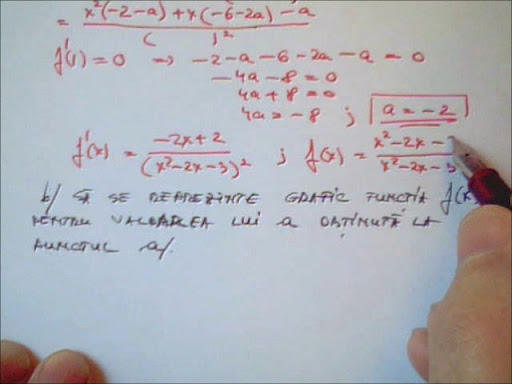 = x²(-2-a)+x(-6-2a)-a / ( )²
f'(1)=0 ⇒ -2-a-6-2a-a=0
-4a-8=0
4a+8=0
4a=-8 ; a=-2
f'(x) = -2x+2 / (x²-2x-3)² ; f(x) = x²-2x- / x²-2x-3
b/ SĂ SE REPREZINTE GRAFIC FUNCȚIA f(x
PENTRU VALOAREA LUI a OBȚINUTĂ LA
PUNCTUL a/.